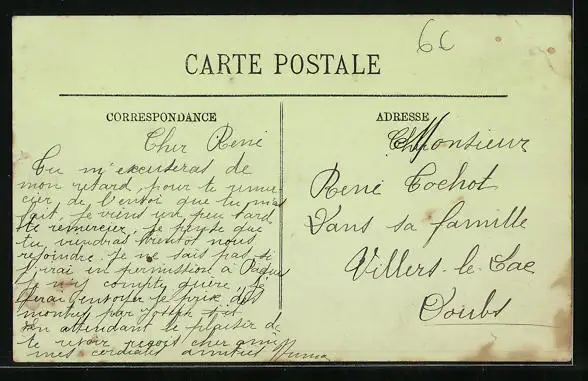 6c
CARTE POSTALE
CORRESPONDANCE
Cher René
Tu m'excuseras de
mon retard, pour te remer-
cier de l'envoi que tu m'as
fait, je viens un peu tard
te remercier, je pense que
tu viendras bientôt nous
rejoindre. Je ne sais pas si
j'irai en permission à Pâques
je n'y compte guère, je
ferai envoyer le prix des
montres par Joseph
En attendant le plaisir de
te revoir reçois cher ami
mes cordiales amitiés
ADRESSE
Monsieur
René Cochot
Dans sa famille
Villers-le-Lac
Doubs